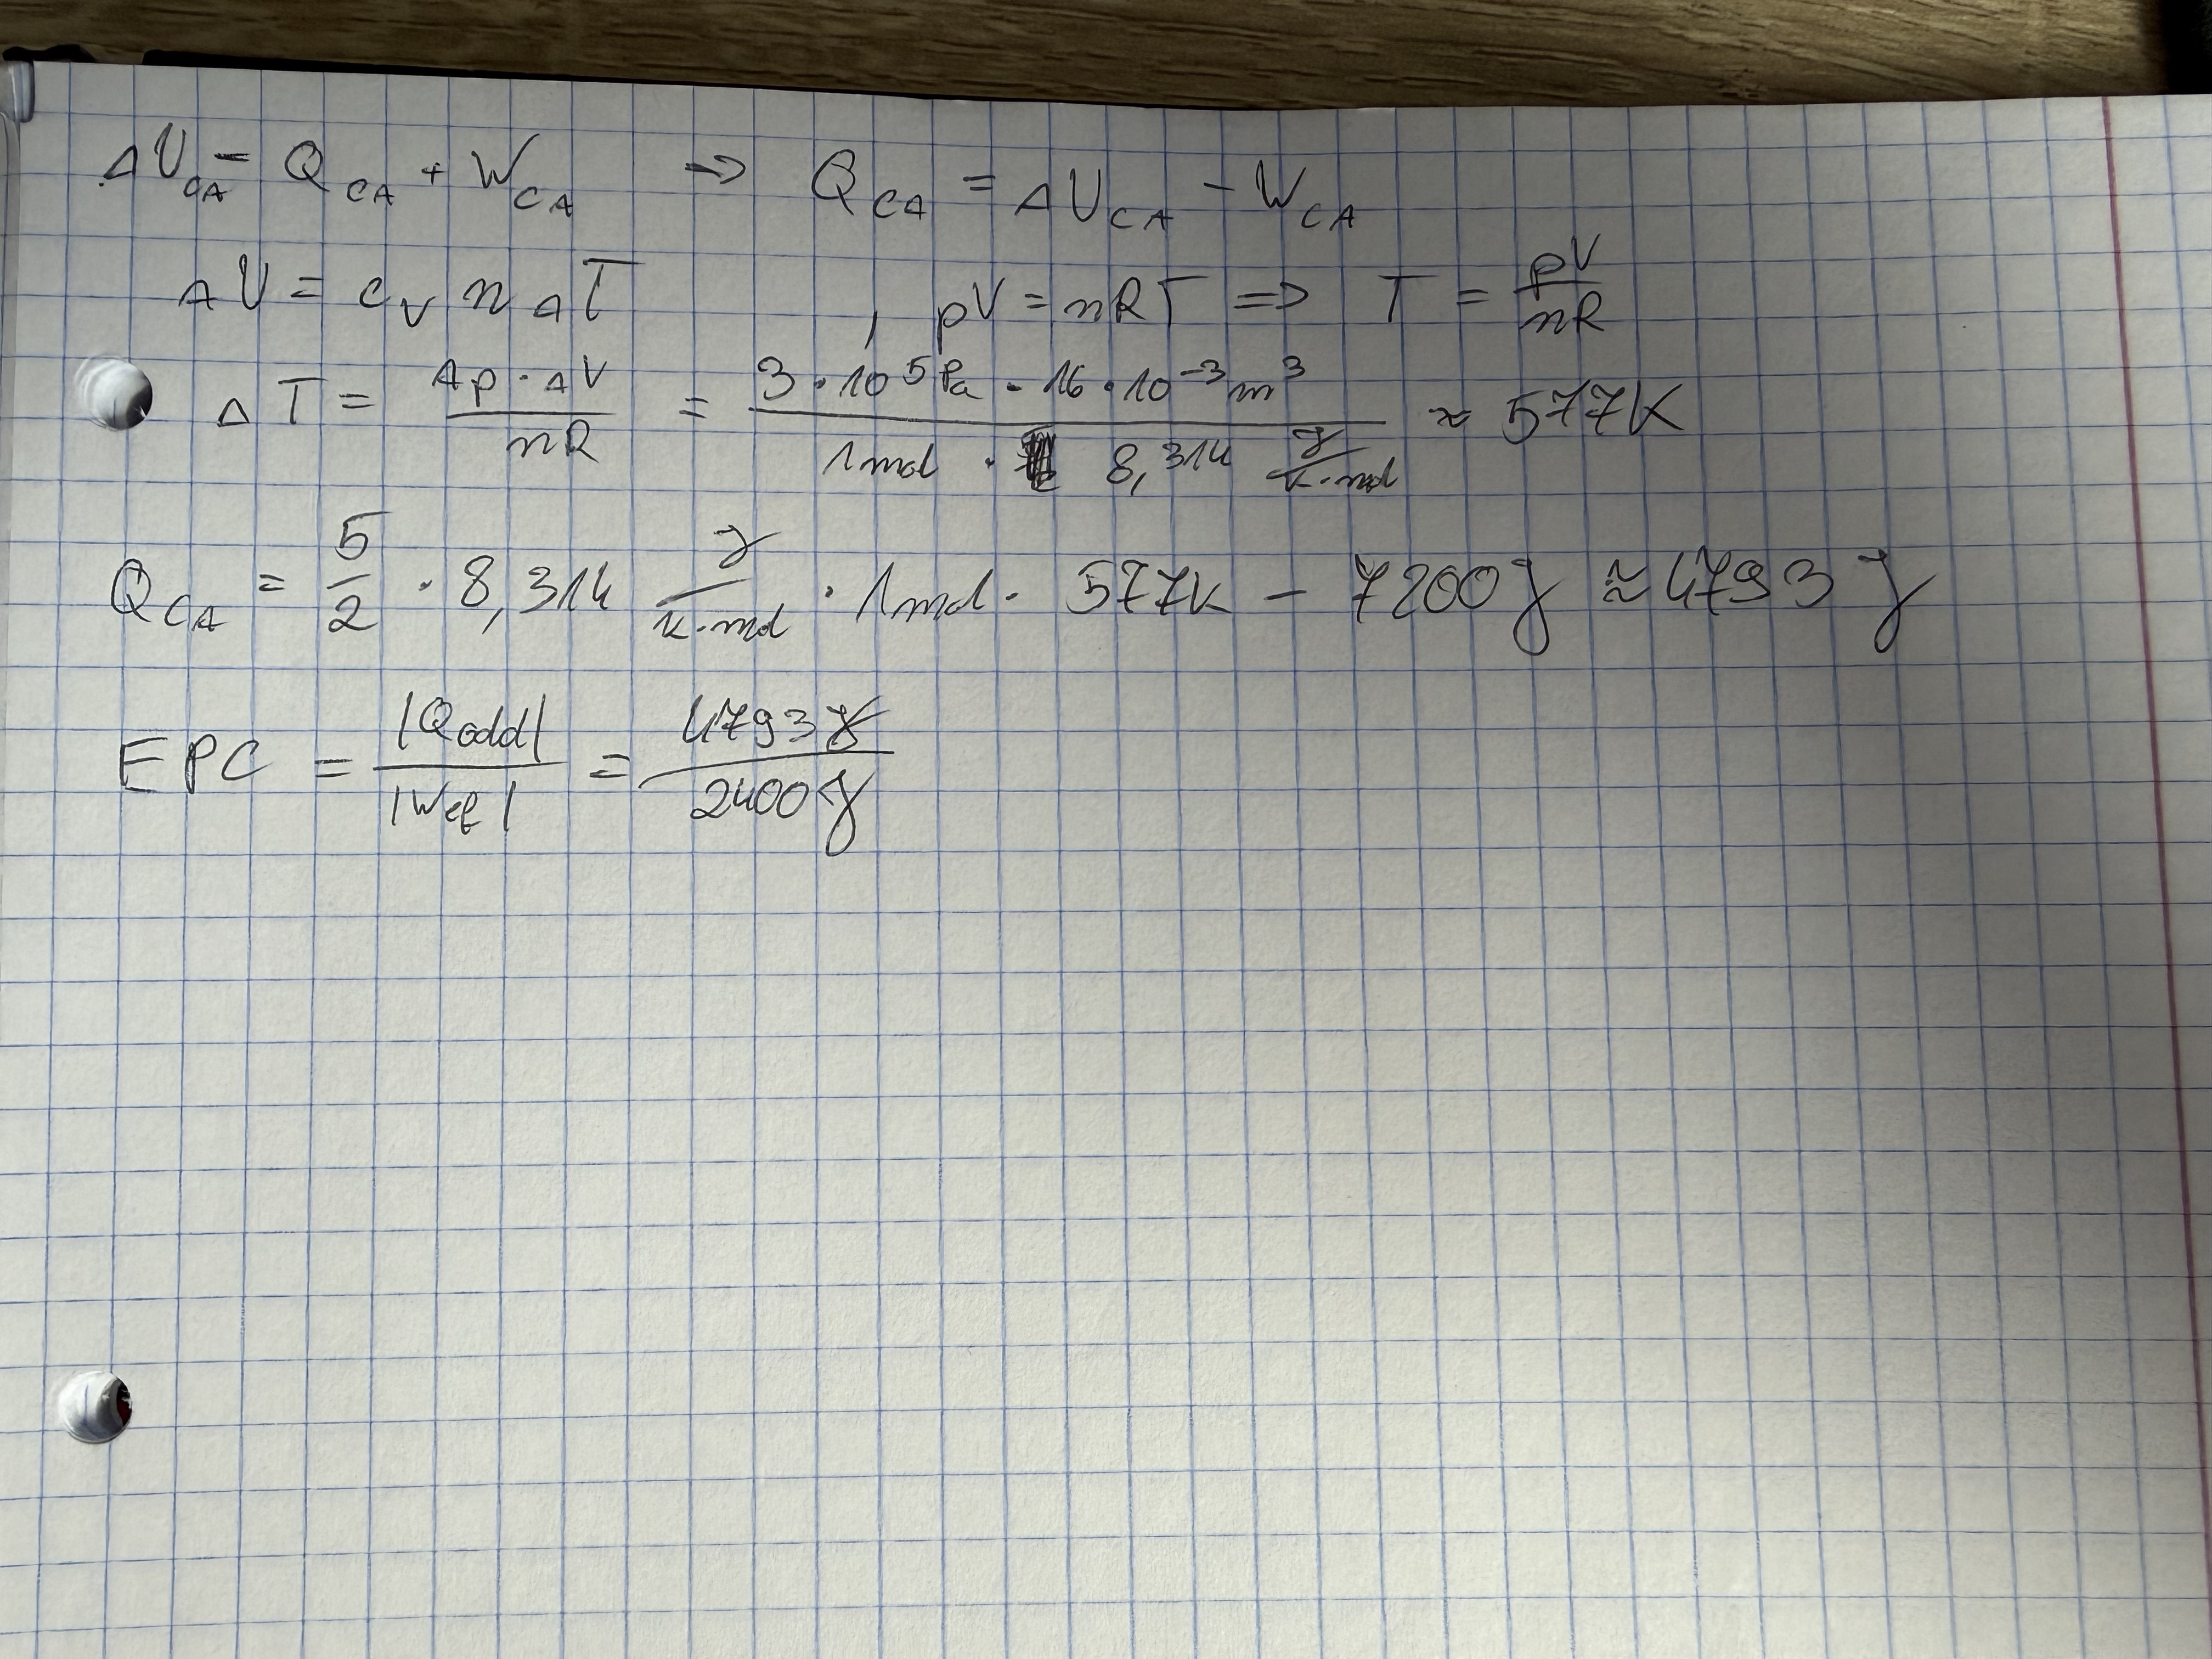 ΔU_CA = Q_CA + W_CA ⇒ Q_CA = ΔU_CA − W_CA
ΔU = c_V n ΔT , pV = nRT ⇒ T = pV/nR
ΔT = Δp · ΔV / nR = 3 · 10^5 Pa · 16 · 10^-3 m^3 / 1 mol · 8,314 J/K·mol ≈ 577K
Q_CA = 5/2 · 8,314 J/K·mol · 1mol · 577K − 7200J ≈ 4793 J
EPC = |Qodd| / |Wef| = 4793 J / 2400 J